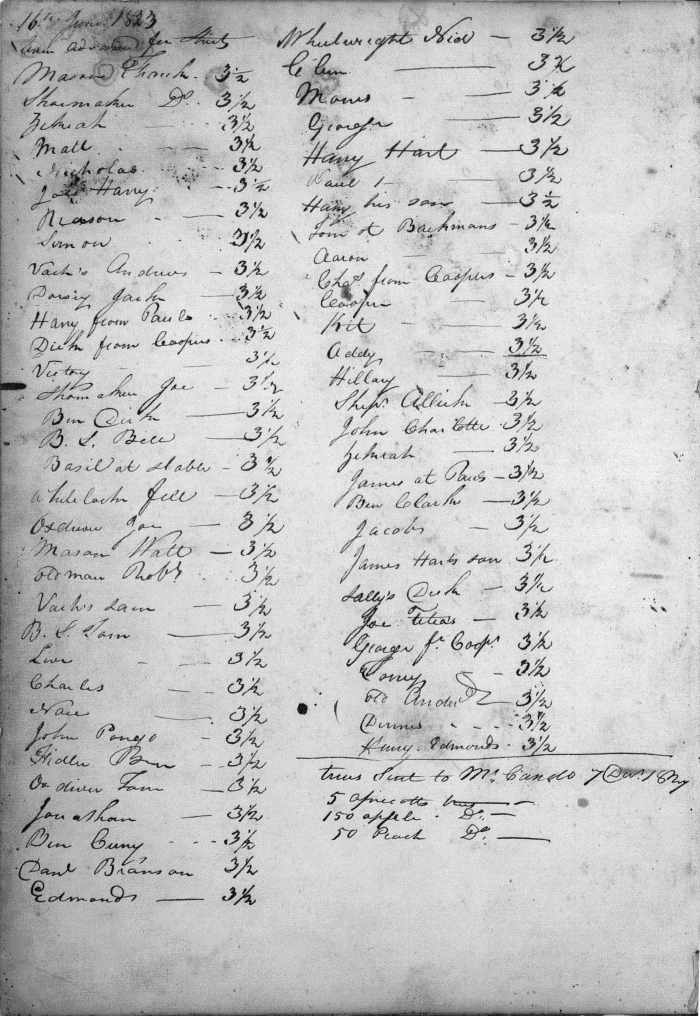 16th June 1823
for Shirts
Mason Frank 3½
Shoemaker Do. 3½
3½
Matt 3½
Nicholas 3½
Joe Harry 3½
Reason 3½
Simon 3½
Vach's Andrew — 3½
Dorsey Jack — 3½
Harry from Pauls 3½
Dick from Coopers 3½
Victory — 3½
Shomaker Joe — 3½
Ben Dick — 3½
B. S. Bill — 3½
Basil at stable — 3½
3½
Oxdriver Joe — 3½
Mason Watt — 3½
old man Robt 3½
Vach's Sam — 3½
B. S. Tom — 3½
3½
Charles — 3½
Nace — 3½
John Pongo — 3½
Fidler Ben — 3½
Ox driver Tom — 3½
Jonathan — 3½
Ben Cuny - - 3½
Danl Branson 3½
Edmonds — 3½
Wheelwright Nick — 3½
— 3½
Moses — 3½
George 3½
Harry Hart — 3½
Paul 1 — 3½
Harry his son — 3½
Tom at Bachmans - 3½
Aaron — 3½
Chas from Coopers — 3½
Cooper — 3½
Kit — 3½
Addy — 3½
Hillary — 3½
3½
John Charlotte 3½
— 3½
James at Pauls — 3½
Ben Clark — 3½
Jacob — 3½
James Harts son 3½
Sally's Dick — 3½
Joe — 3½
George fr. Coops 3½
— 3½
old 3½
Dennis - - - 3½
Henry Edmonds - 3½
trees Sent to Mr.
5 apricotts trees —
150 apple . Do. —
50 Peach Do. —